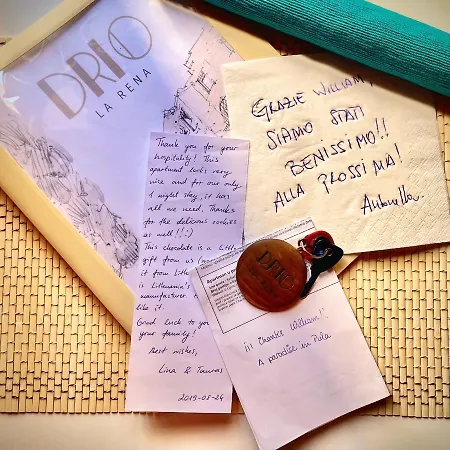 DRIO
LA RENA
GRAZIE WILLIAM,
SIAMO STATI
BENISSIMO!!
ALLA PROSSIMA!
Antonella
Thank you for your
hospitality! This
apartment looks very
nice and for our only
1 night stay, it has
all we need. Thanks
for the delicious cookies
as well!! :)
This chocolate is a little
gift from us
it from
is Lithuania's
manufacturer.
like it.
Good luck to you
your family!
Best wishes,
Lina & Tauras
2019-08-24
DRIO
¡¡¡ Thanks William!!
A paradise in Pula